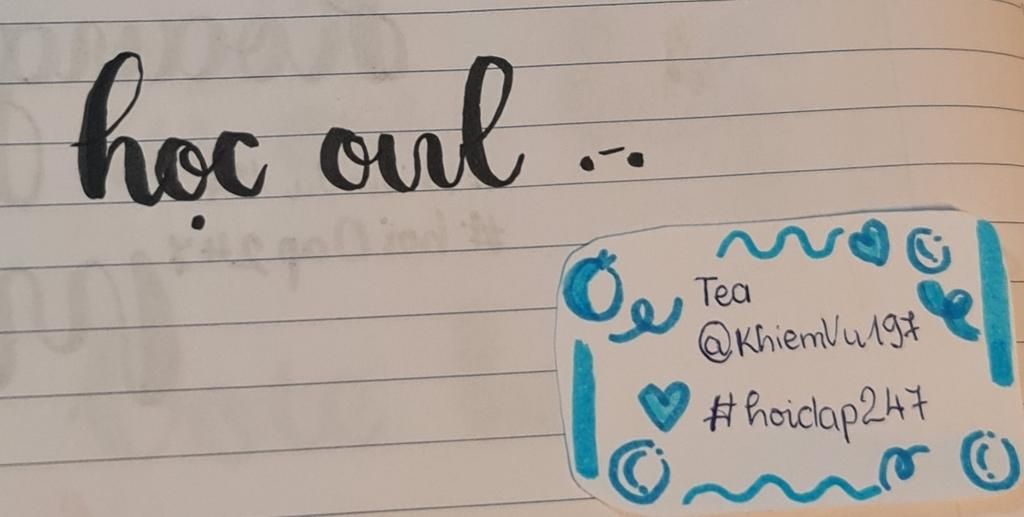 học onl ...
Tea
@KhiemVu197
#hoidap247